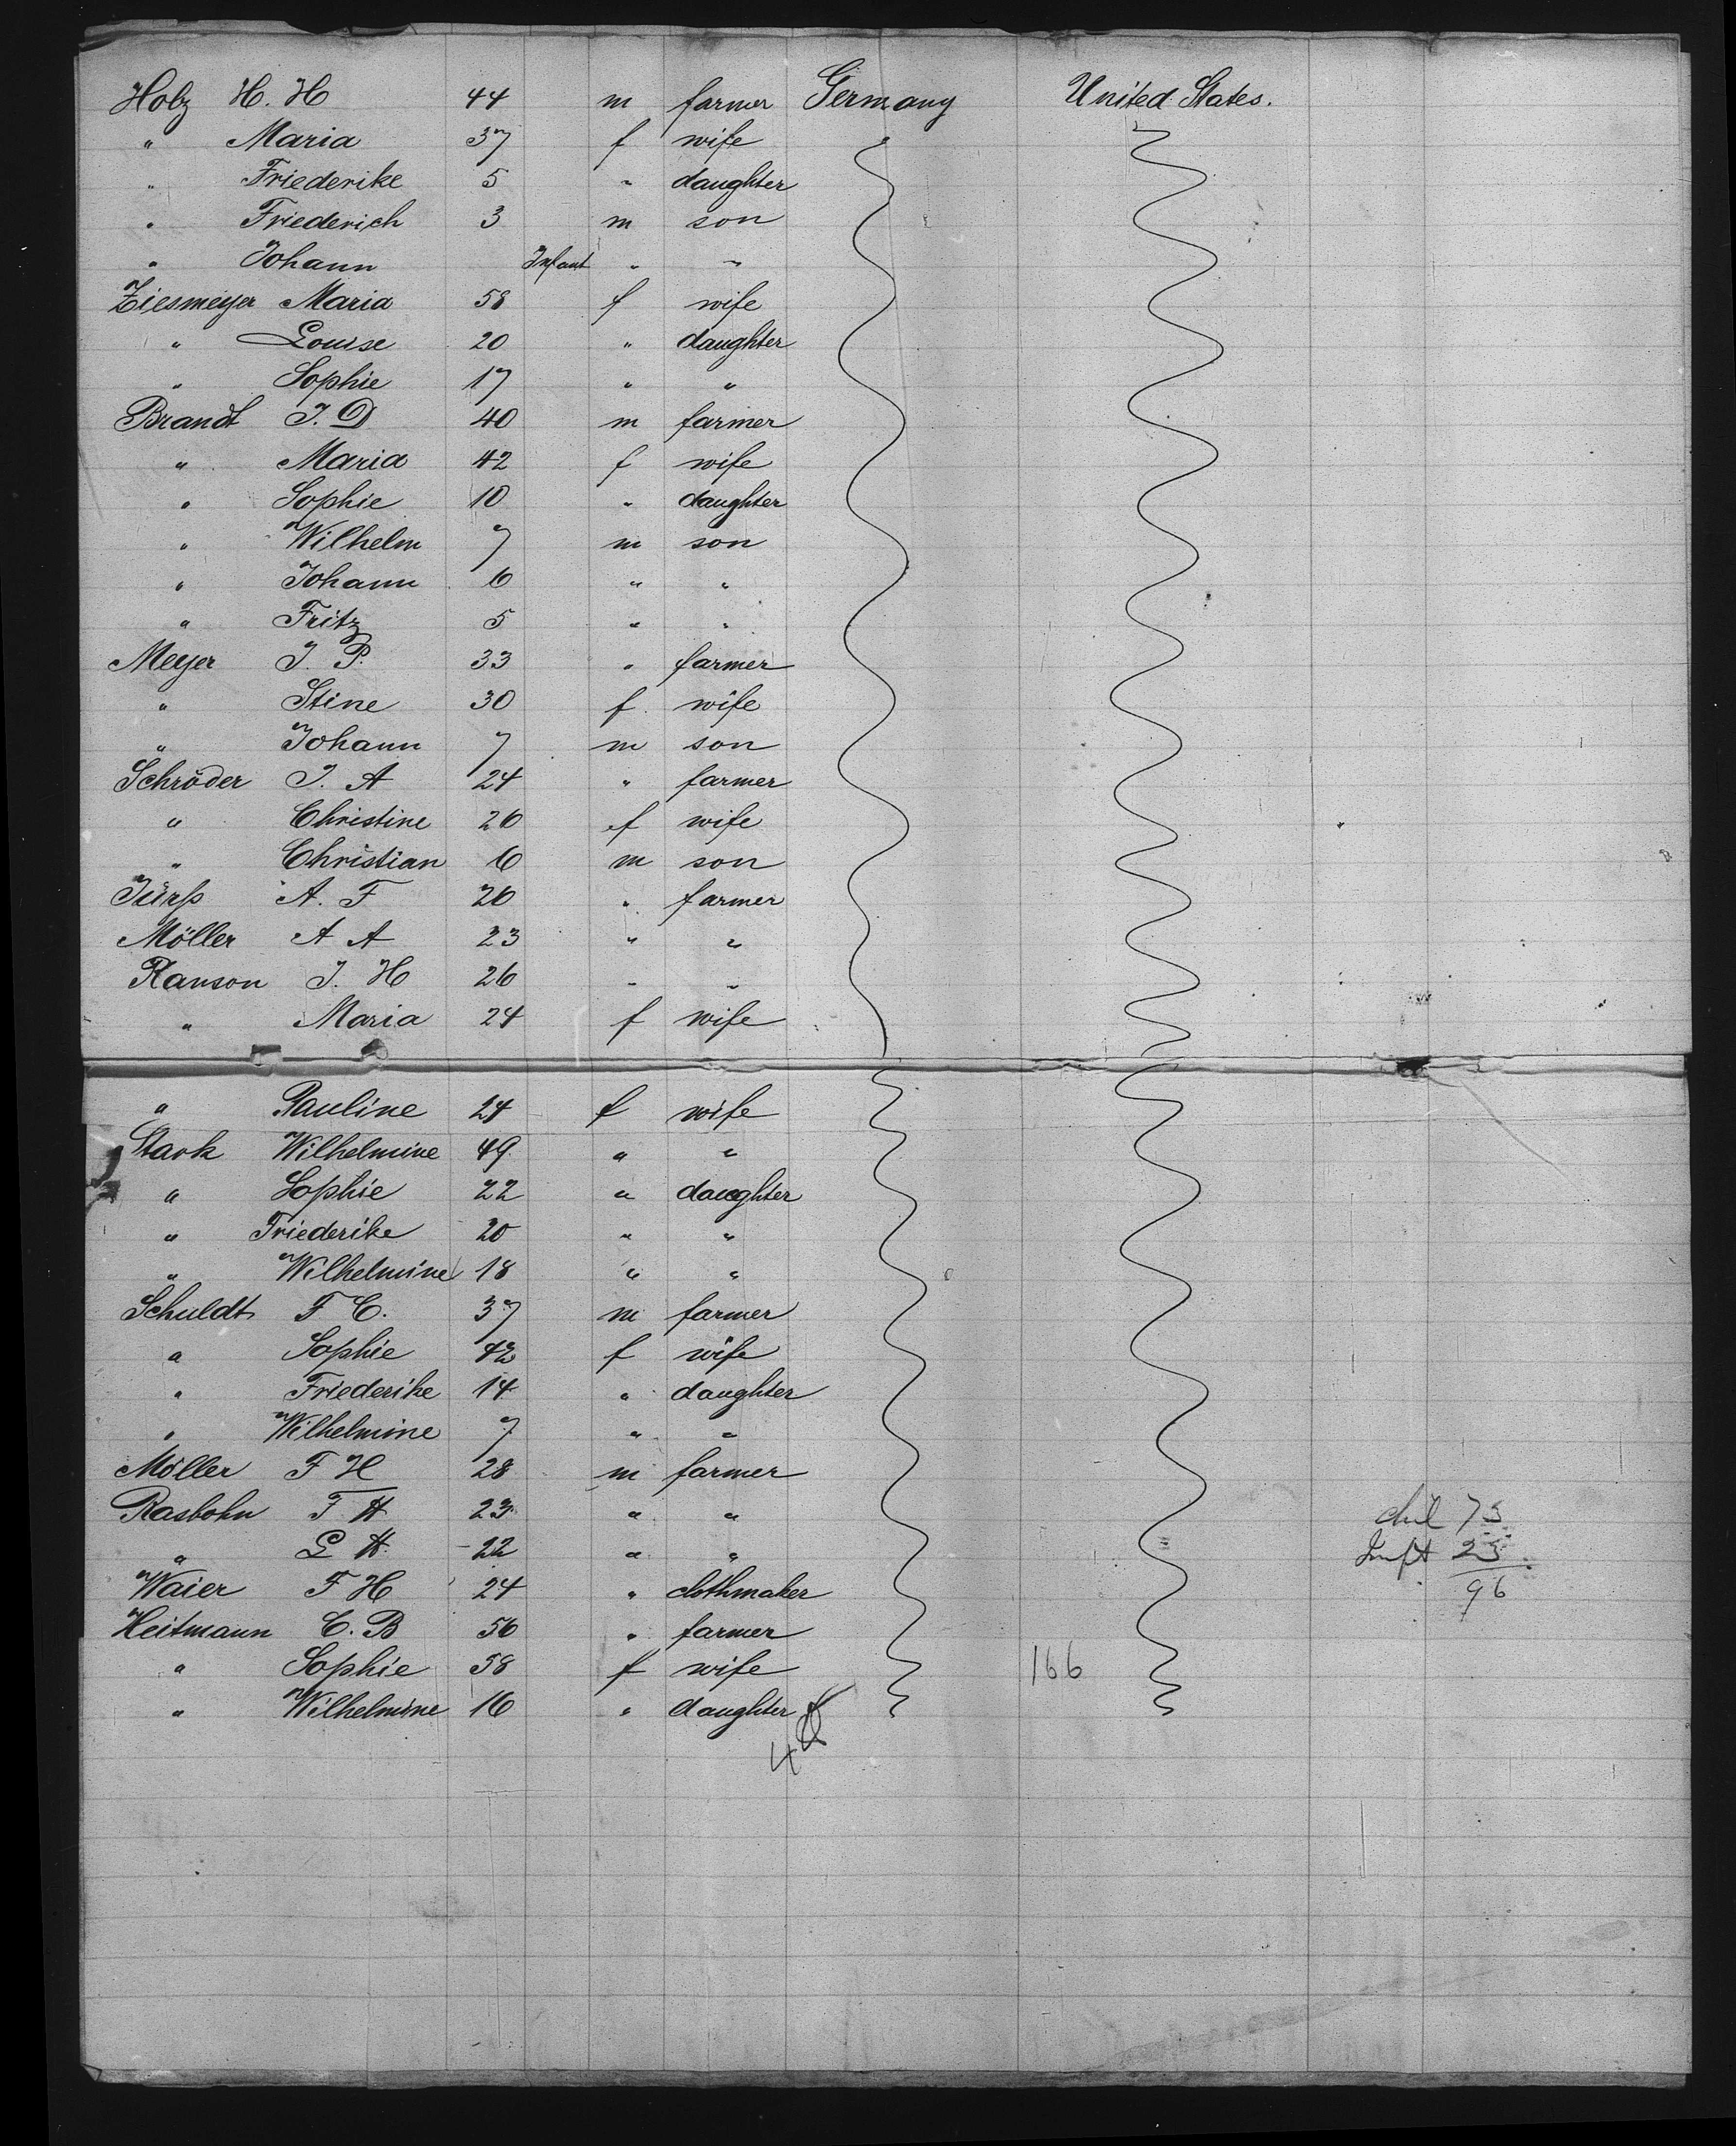 Holz H. H 44 m farmer Germany United States.
" Maria 37 f wife
" Friederike 5 " daughter
" Friederich 3 m son
" Johann Infant " "
Ziesmeyer Maria 58 f wife
" Louise 20 " daughter
" Sophie 17 " "
Brandt J. D 40 m farmer
" Maria 42 f wife
" Sophie 10 " daughter
" Wilhelm 7 m son
" Johann 6 " "
" Fritz 5 " "
Meyer J. P. 33 " farmer
" Stine 30 f wife
" Johann 7 m son
Schröder J. A 24 " farmer
" Christine 26 f wife
" Christian 6 m son
Jürß A. F 26 " farmer
Möller A A 23 " "
Ranson J. H 26 " "
" Maria 24 f wife
" Pauline 24 f wife
Stark Wilhelmine 49 " "
" Sophie 22 " daughter
" Friederike 20 " "
" Wilhelmine 18 " "
Schuldt F C. 37 m farmer
" Sophie 42 f wife
" Friederike 14 " daughter
" Wilhelmine 7 " "
Möller F H 28 m farmer
Rasbohn F H 23 " "
" L H. 22 " "
Waier F H 24 " clothmaker
Heitmann C. B 56 " farmer
" Sophie 58 f wife 166
" Wilhelmine 16 " daughter
4
chil 73
Inft 23
96